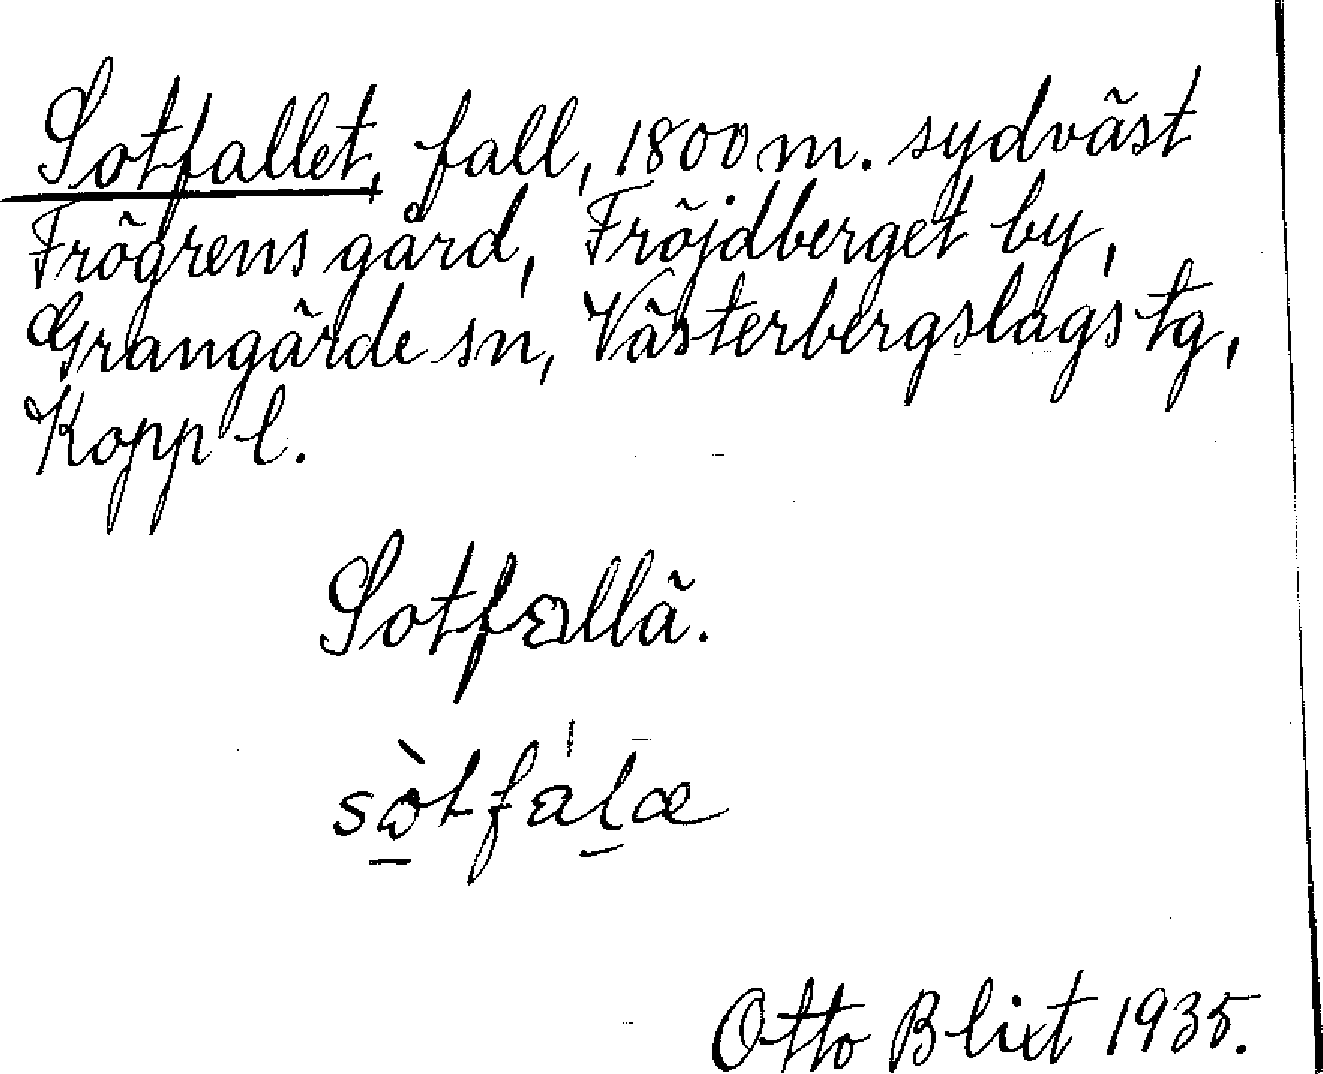 Sotfallet, fall, 1800 m. sydväst
Frögrens gård, Fröjdberget by,
Grangärde sn, Västerbergslags tg,
Kopp l.
Sotfallä.